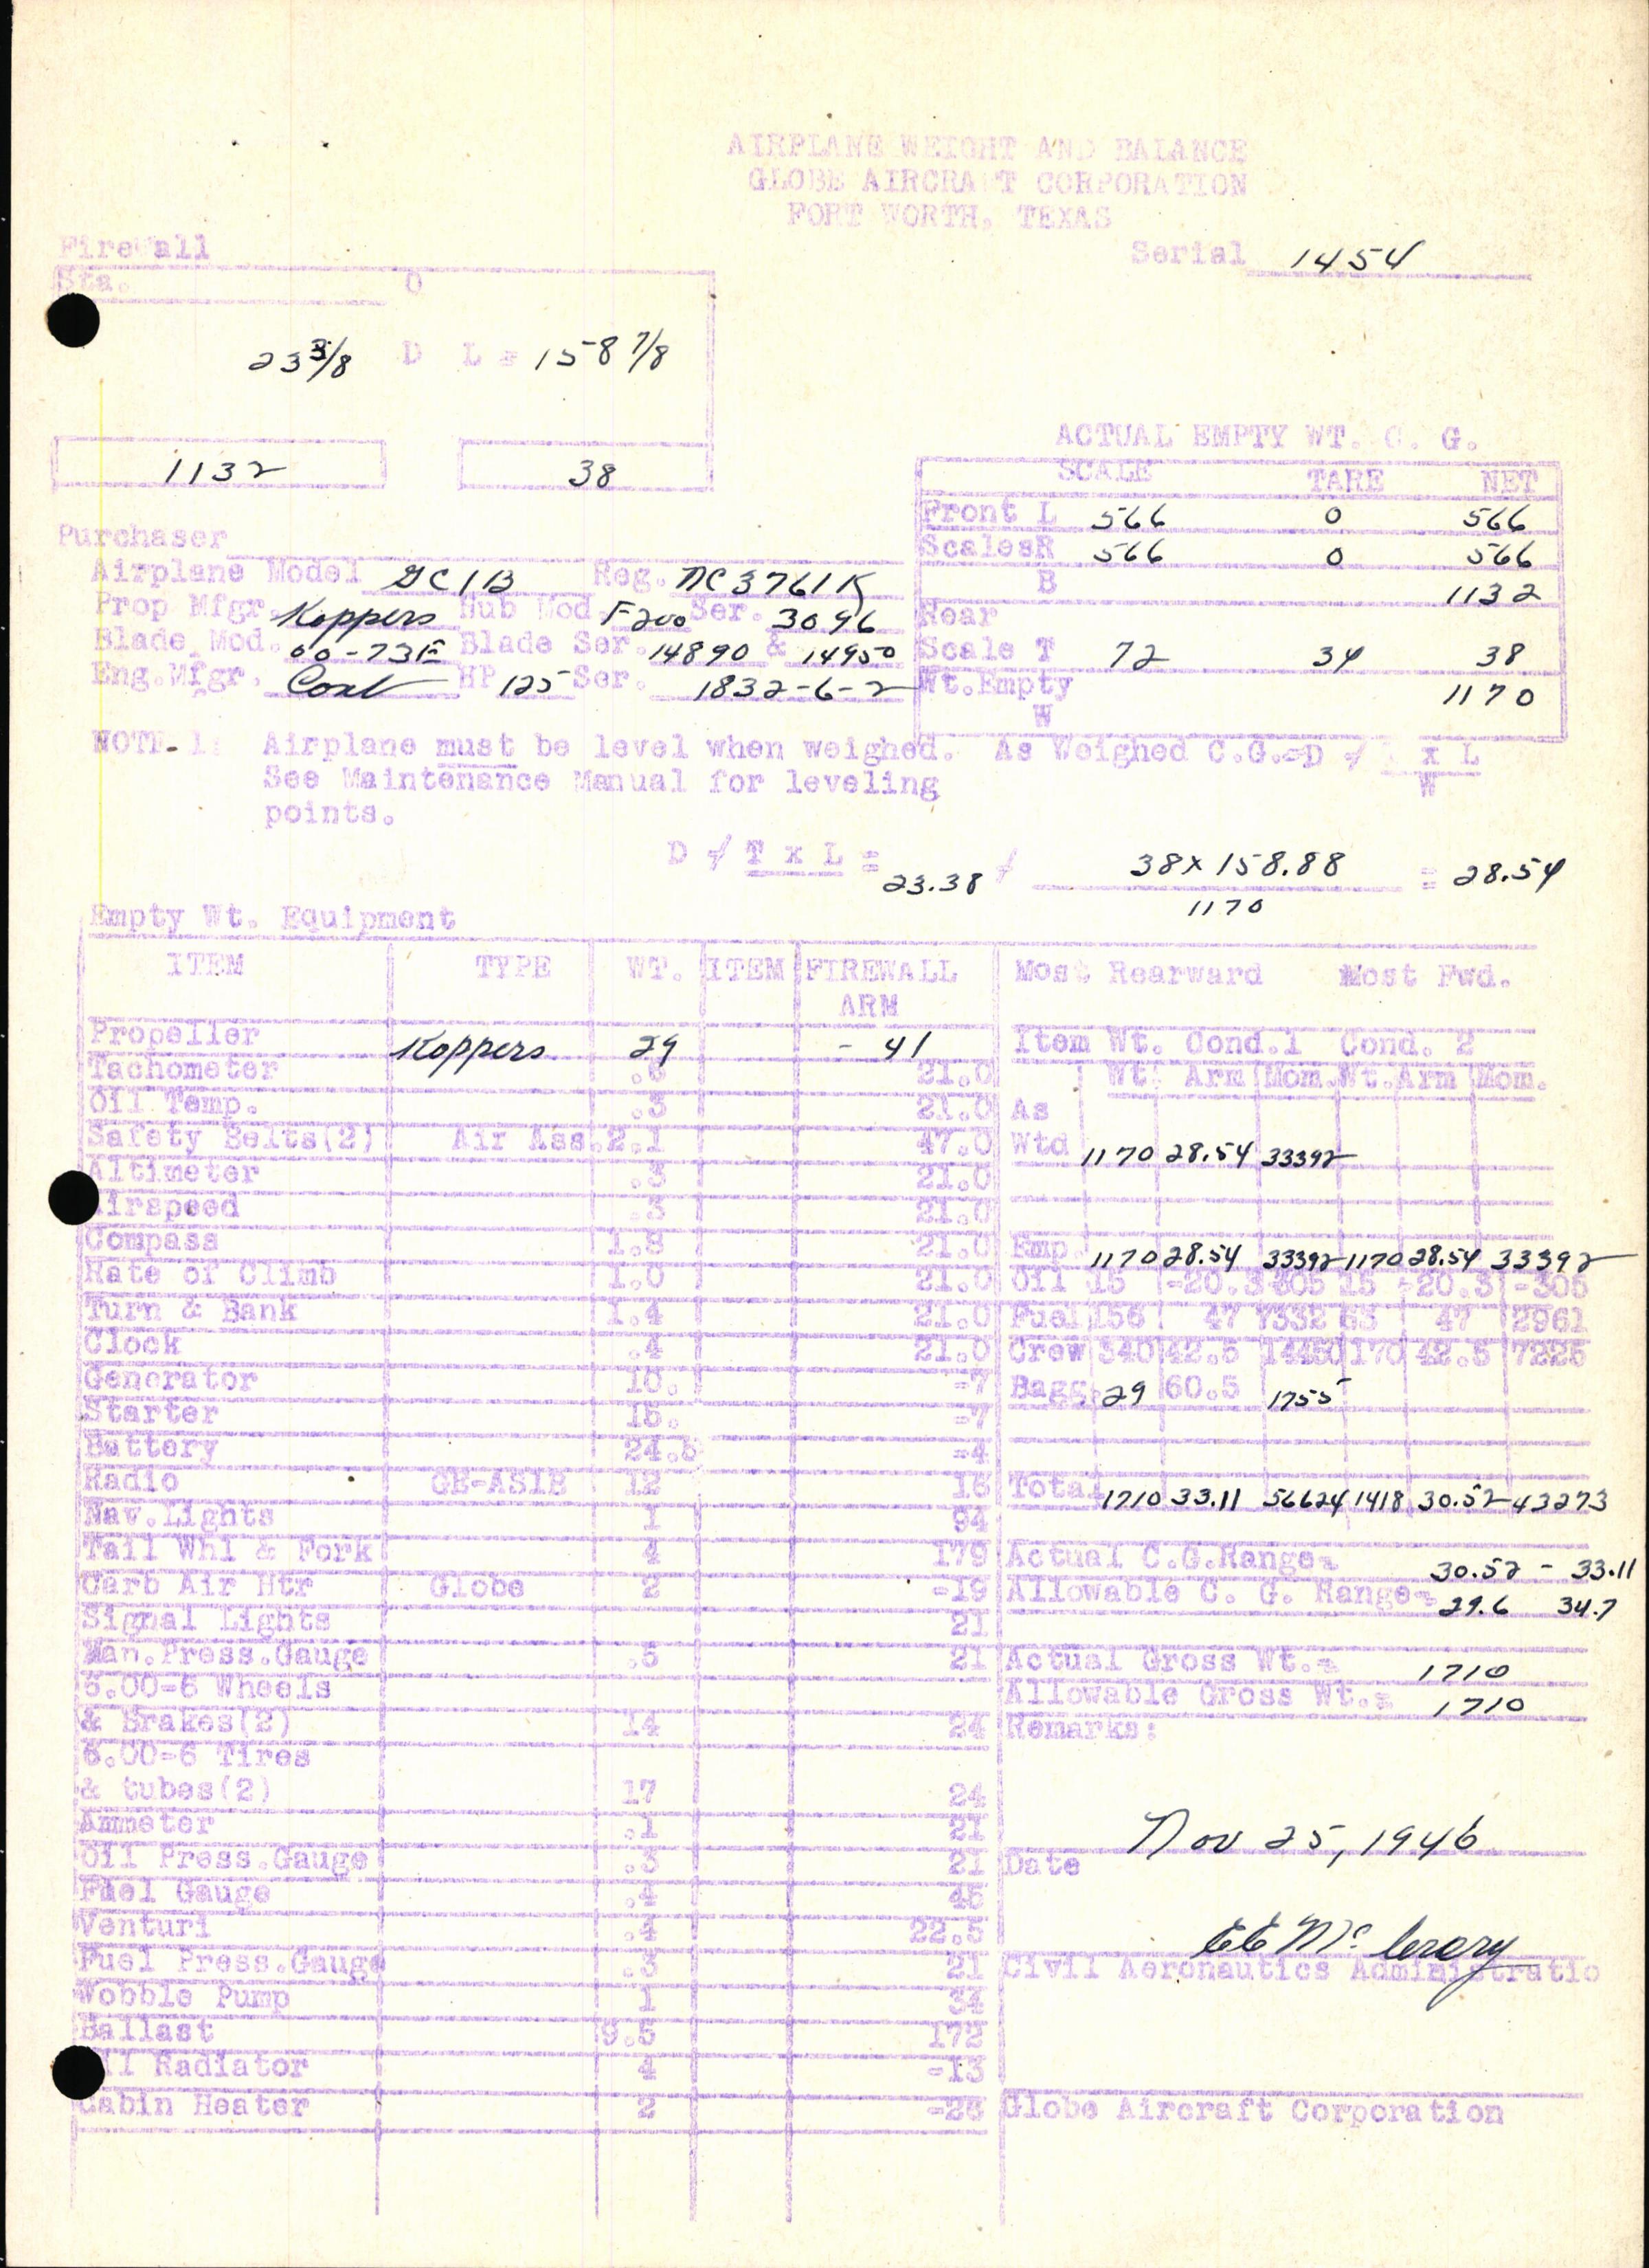 AIRPLANE WEIGHT AND BALANCE
GLOBE AIRCRAFT CORPORATION
FORT WORTH, TEXAS
Serial 1454
Firewall
Sta. 0
23 3/8 D L = 158 7/8
1132 38
ACTUAL EMPTY WT. C. G.
SCALE TARE NET
Front L 566 0 566
Scales R 566 0 566
B 1132
Rear
Scale T 72 34 38
Wt. Empty 1170
W
Purchaser
Airplane Model GC1B Reg. NC3761K
Prop Mfgr. Koppers Hub Mod. F200 Ser. 3096
Blade Mod. 00-73E Blade Ser. 14890 & 14950
Eng. Mfgr. Cont HP 125 Ser. 1832-6-2
NOTE 1: Airplane must be level when weighed. As Weighed C.G.=D / x L
See Maintenance Manual for leveling W
points.
D / T x L = 23.38 / 38 x 158.88 = 28.54
1170
Empty Wt. Equipment
ITEM TYPE WT. ITEM FIREWALL
ARM
Propeller Koppers 29 - 41
Tachometer 21.0
Oil Temp. .3 21.0
Safety Belts(2) Air Ass. 2.1 47.0
Altimeter .3 21.0
Airspeed .3 21.0
Compass 1.8 21.0
Rate of Climb 1.0 21.0
Turn & Bank 1.4 21.0
Clock .4 21.0
Generator 10. -7
Starter -7
Battery 24. -4
Radio GE-AS1B 12 15
Nav. Lights 1 94
Tail Whl & Fork 4 179
Carb Air Htr Globe 2 -19
Signal Lights 21
Man. Press. Gauge .5 21
6.00-6 Wheels
& Brakes(2) 14 24
6.00-6 Tires
& tubes(2) 17 24
Ammeter .1 21
Oil Press. Gauge .3 21
Fuel Gauge .4 45
Venturi .4 22.5
Fuel Press. Gauge .3 21
Wobble Pump 1 34
Ballast 9.5 172
Oil Radiator 4 -13
Cabin Heater 2 -26
Most Rearward Most Fwd.
Item Wt. Cond.1 Cond. 2
Wt. Arm Mom. Wt. Arm Mom.
As
Wtd 1170 28.54 33392
Emp. 1170 28.54 33392 1170 28.54 33392
Oil 15 -20.3 -305 15 -20.3 -305
Fuel 156 47 7332 63 47 2961
Crew 340 42.5 14450 170 42.5 7225
Bagg. 29 60.5 1755
Total 1710 33.11 56624 1418 30.52 43273
Actual C.G. Range= 30.52 - 33.11
Allowable C. G. Range= 29.6 34.7
Actual Gross Wt.= 1710
Allowable Gross Wt.= 1710
Remarks:
Date Nov 25, 1946
Civil Aeronautics Administratio
Globe Aircraft Corporation